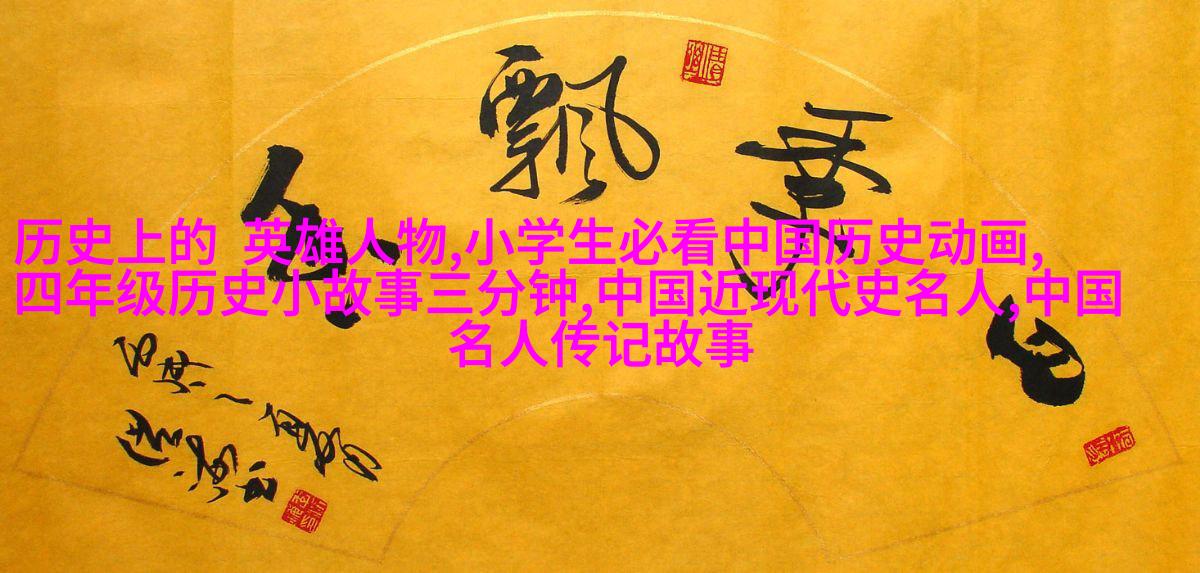 四季飘香
历史上的 英雄人物,小学生必看中国历史动画,
四年级历史小故事三分钟,中国近现代史名人,中国
名人传记故事